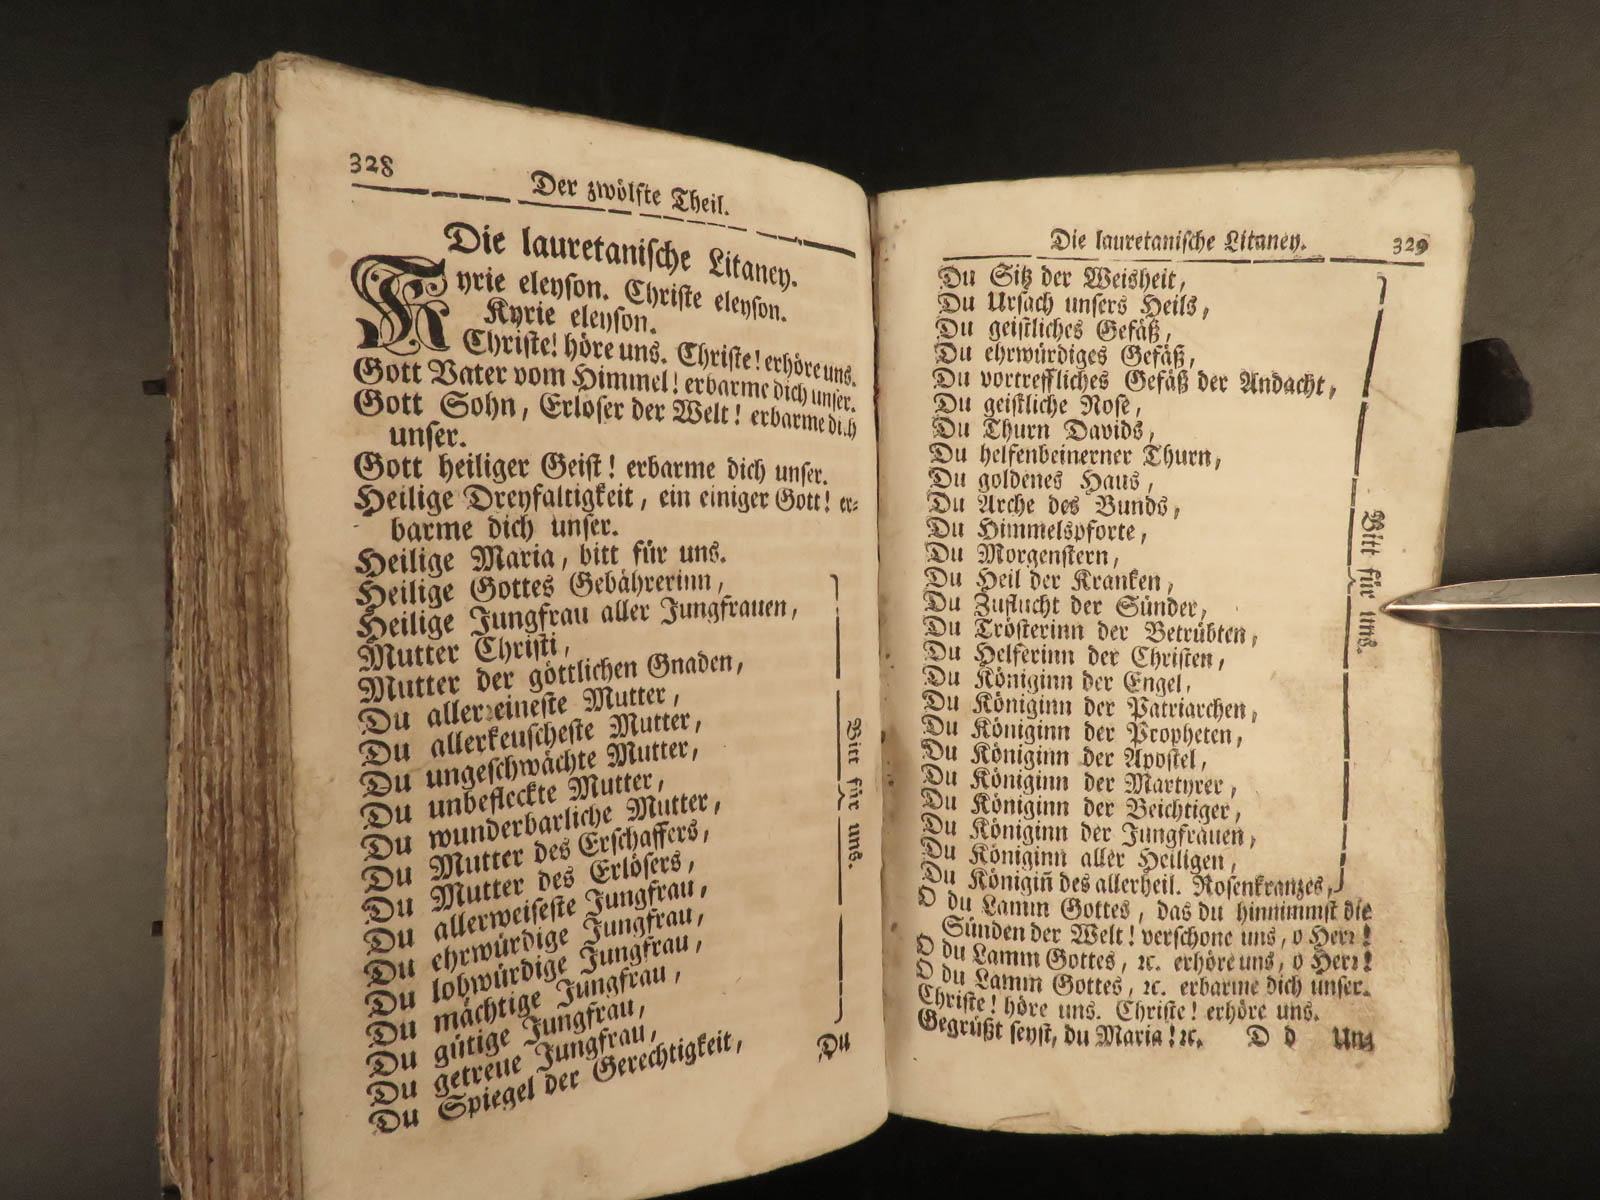 328
Der zwölfte Theil.
Die lauretanische Litaney.
Kyrie eleyson. Christe eleyson.
Kyrie eleyson.
Christe! höre uns. Christe! erhöre uns.
Gott Vater vom Himmel! erbarme dich unser.
Gott Sohn, Erlöser der Welt! erbarme dich
unser.
Gott heiliger Geist! erbarme dich unser.
Heilige Dreyfaltigkeit, ein einiger Gott! er-
barme dich unser.
Heilige Maria, bitt für uns.
Heilige Gottes Gebährerinn,
Heilige Jungfrau aller Jungfrauen,
Mutter Christi,
Mutter der göttlichen Gnaden,
Du allerreineste Mutter,
Du allerkeuscheste Mutter,
Du ungeschwächte Mutter,
Du unbefleckte Mutter,
Du wunderbarliche Mutter,
Du Mutter des Erschaffers,
Du Mutter des Erlösers,
Du allerweiseste Jungfrau,
Du ehrwürdige Jungfrau,
Du lobwürdige Jungfrau,
Du mächtige Jungfrau,
Du gütige Jungfrau,
Du getreue Jungfrau,
Du Spiegel der Gerechtigkeit,
Bitt für uns.
Du
Die lauretanische Litaney.
329
Du Sitz der Weisheit,
Du Ursach unsers Heils,
Du geistliches Gefäß,
Du ehrwürdiges Gefäß,
Du vortreffliches Gefäß der Andacht,
Du geistliche Rose,
Du Thurn Davids,
Du helfenbeinerner Thurn,
Du goldenes Haus,
Du Arche des Bunds,
Du Himmelspforte,
Du Morgenstern,
Du Heil der Kranken,
Du Zuflucht der Sünder,
Du Trösterinn der Betrübten,
Du Helferinn der Christen,
Du Königinn der Engel,
Du Königinn der Patriarchen,
Du Königinn der Propheten,
Du Königinn der Apostel,
Du Königinn der Martyrer,
Du Königinn der Beichtiger,
Du Königinn der Jungfrauen,
Du Königinn aller Heiligen,
Du Königiñ des allerheil. Rosenkranzes,
Bitt für uns.
O du Lamm Gottes, das du hinnimmst die
Sünden der Welt! verschone uns, o Herr!
O du Lamm Gottes, ꝛc. erhöre uns, o Herr!
O du Lamm Gottes, ꝛc. erbarme dich unser.
Christe! höre uns. Christe! erhöre uns.
Gegrüßt seyst, du Maria! ꝛc.
D d
Uns